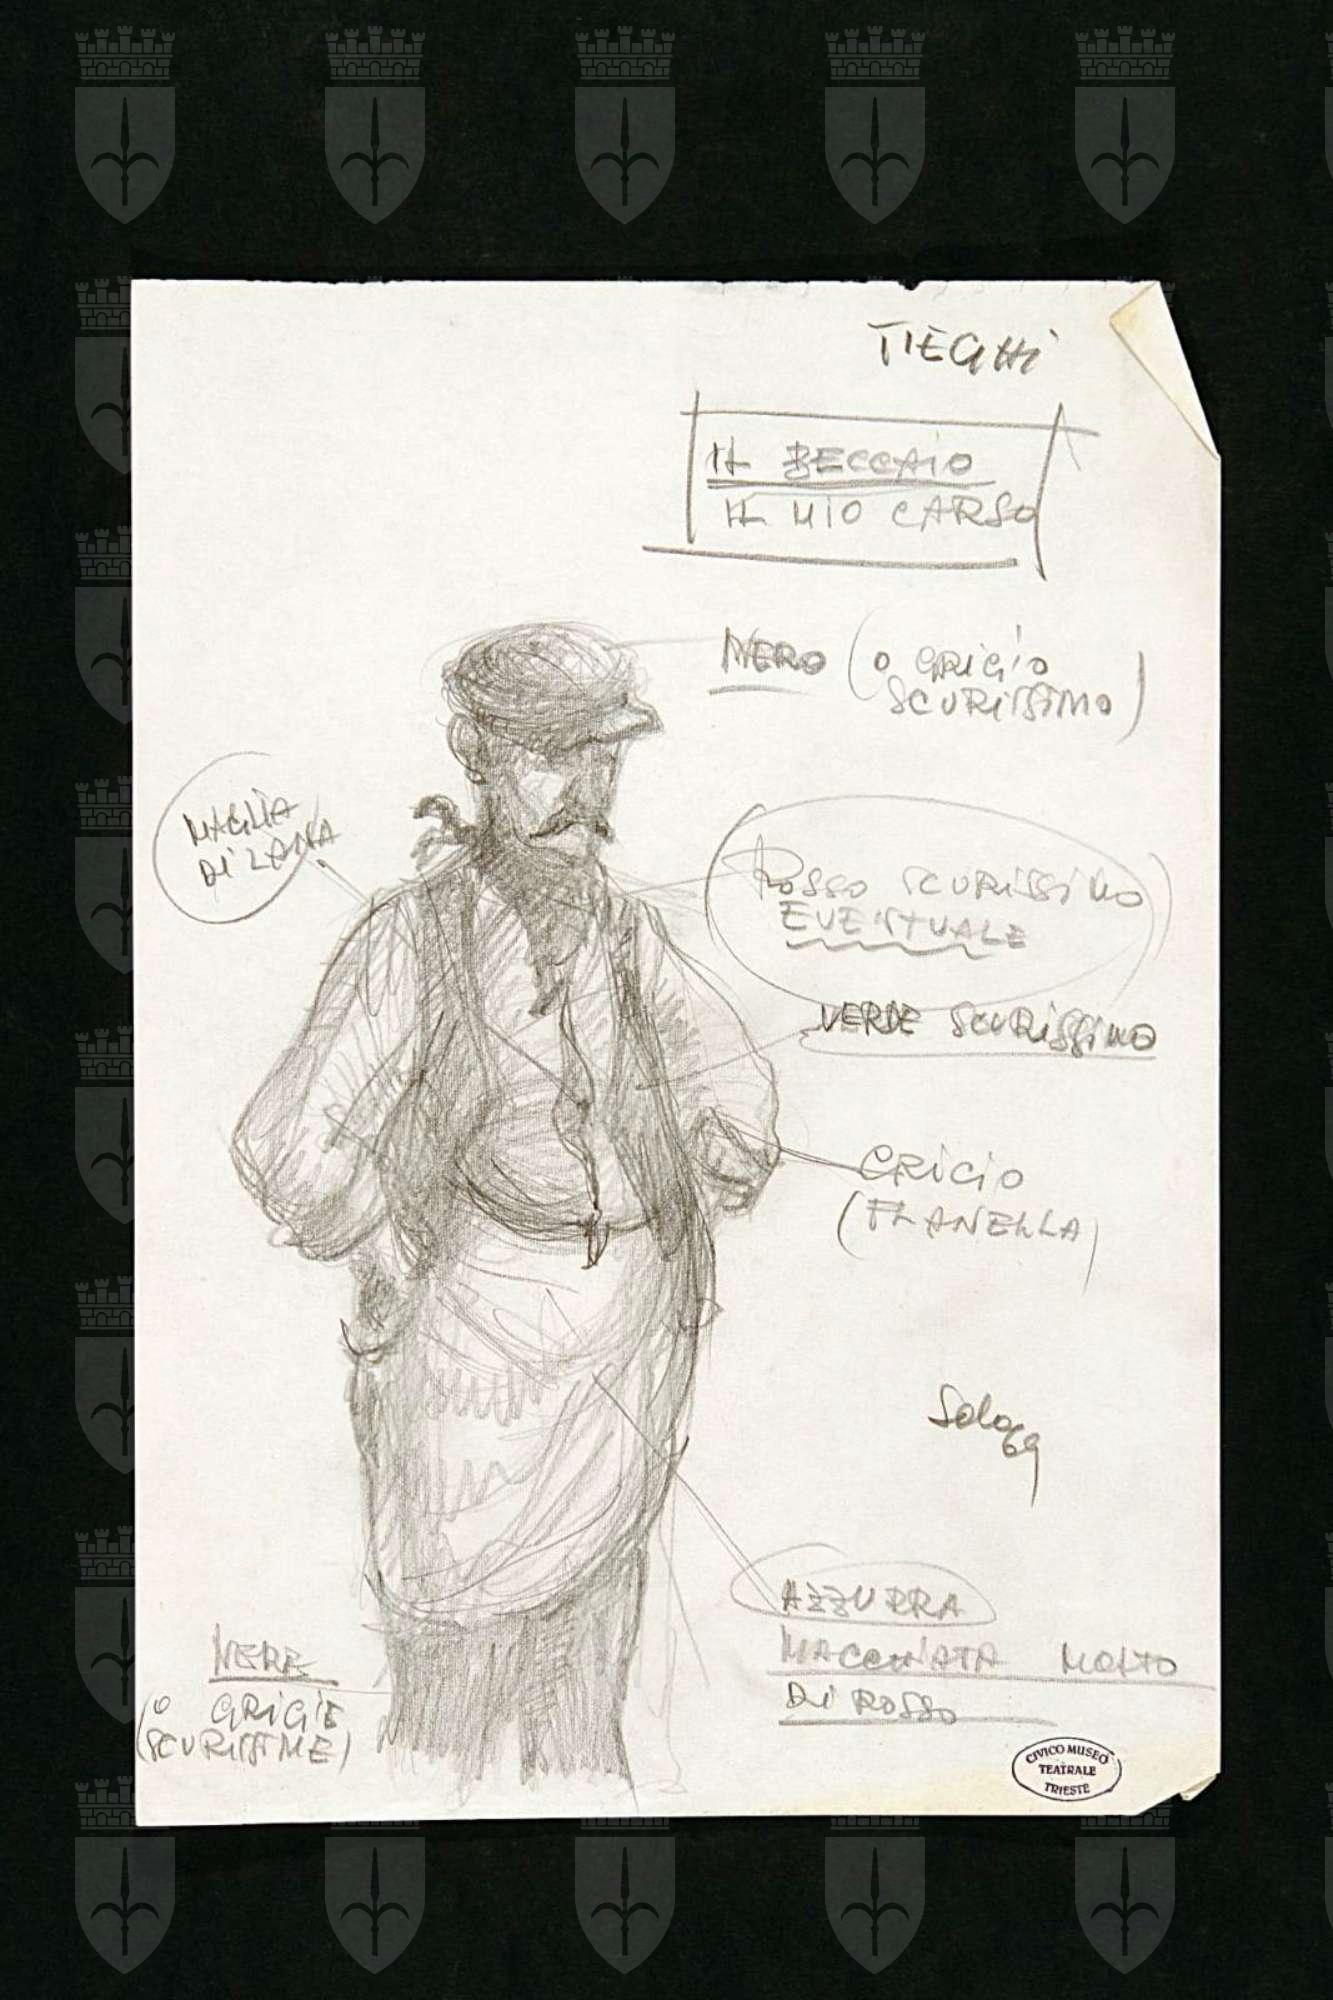 TIEGHI
IL BECCAIO
IL MIO CARSO
NERO (O GRIGIO
SCURISSIMO)
MAGLIA
DI LANA
ROSSO SCURISSIMO
EVENTUALE
VERDE SCURISSIMO
GRIGIO
(FLANELLA)
69
AZZURRA
MACCHIATA MOLTO
DI ROSSO
NERE
(O GRIGIE
SCURISSIME)
CIVICO MUSEO
TEATRALE
TRIESTE